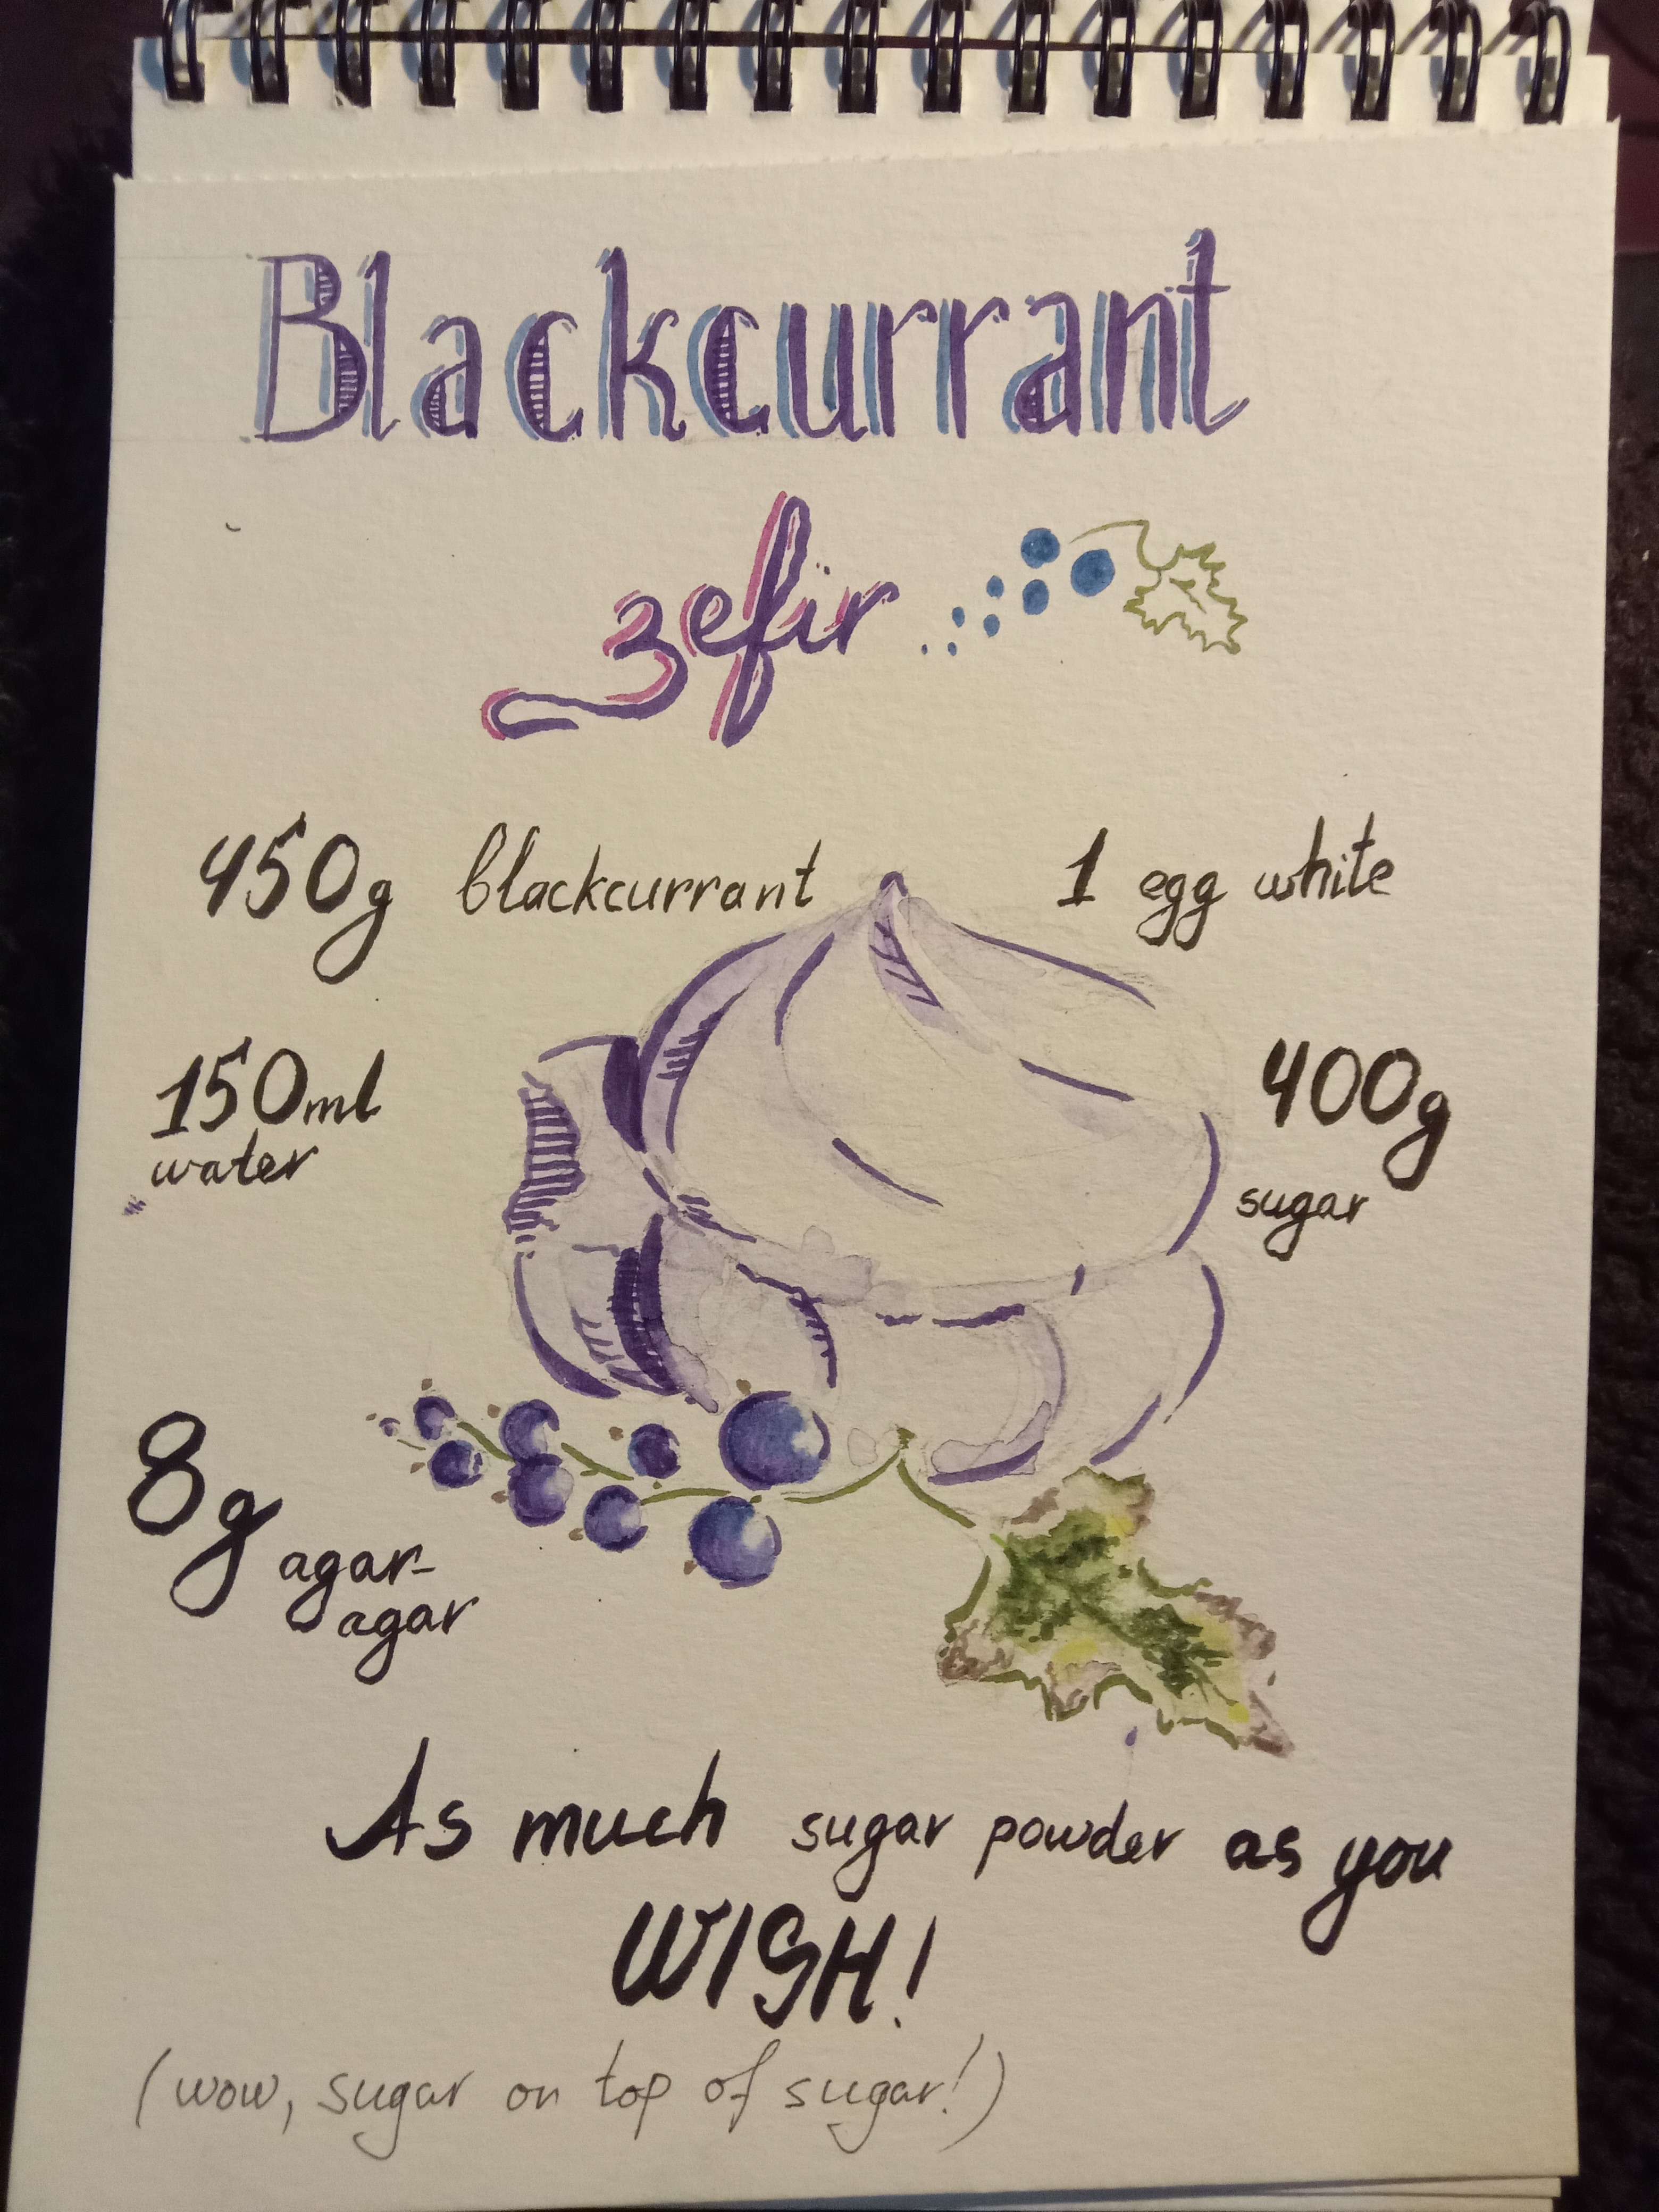 Blackcurrant
zefir
450g blackcurrant
1 egg white
150ml
water
400g
sugar
8g agar-
agar
As much sugar powder as you
WISH!
(wow, sugar on top of sugar!)